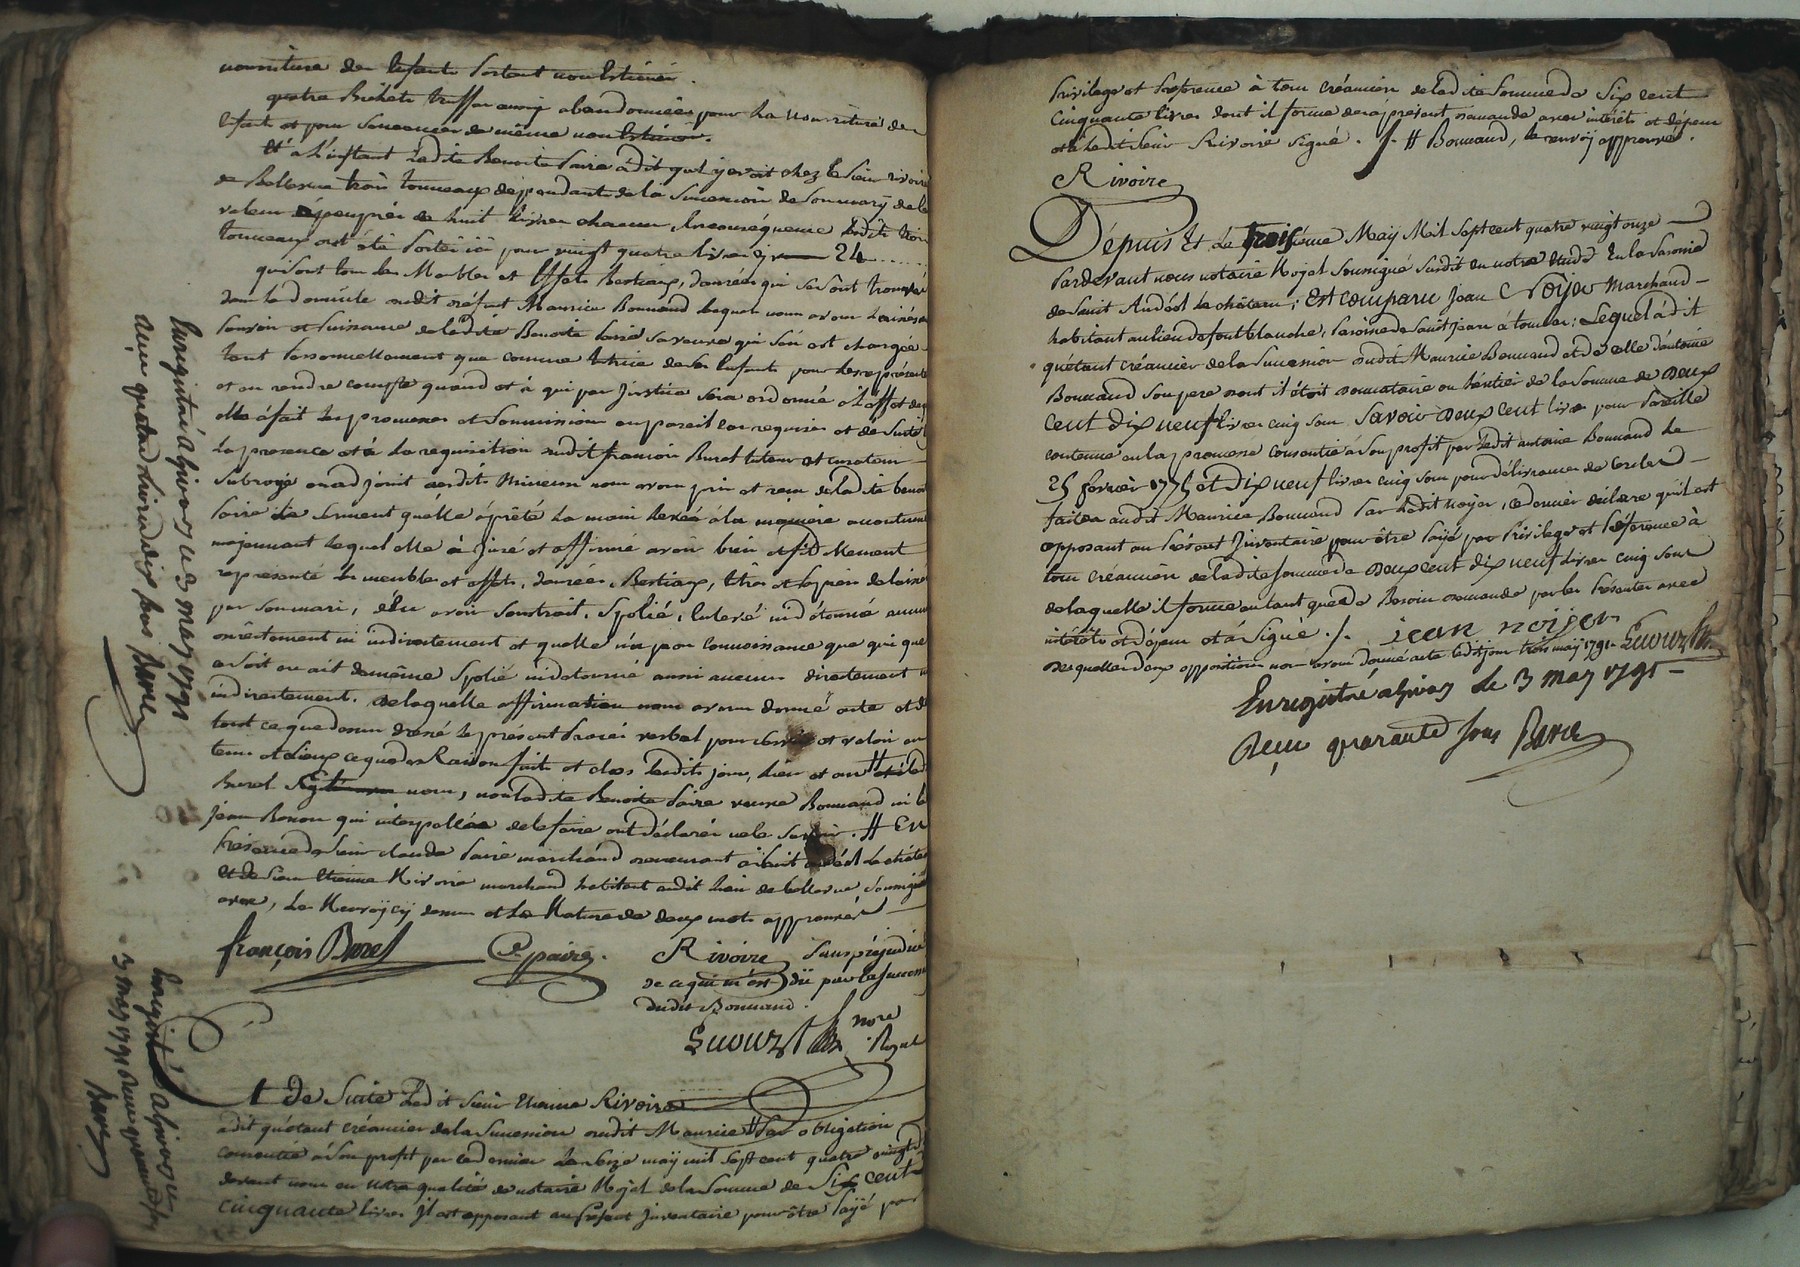 nourriture des Enfants partant non Estimés.
quatre Bichets truffes aussy abandonnées pour La nourriture des
Enfants et pour semences de même non Estimés.
Et à L'instant Ladite Benoite Paire a dit qu'il y avoit chez Le sieur rivoire
de Bellevue trois tonneaux dépendants de la succession de son mary de la
valeur de huit livres chacun, En conséquence Lesdits trois
tonneaux ont été portés ici pour vingt quatre livres cy 24......
qui sont tous les Meubles et Effets Bestiaux, denrées qui se sont trouvés
dans le domicile dudit défunt Maurice Bonnaud lequel nous avons Laissé au
pouvoir et puissance de ladite Benoite Paire sa veuve qui s'en est chargée
tant personnellement que comme tutrice de ses Enfants pour les représenter
et en rendre compte quand et à qui par Justice sera ordonné à L'effet de quoy
elle a fait les promesses et soumission en pareil cas requises et de suite
La presence et à La requisition dudit françois Burel tuteur et curateur
subrogé ou adjoint desdits Mineurs nous avons pris et reçu de ladite benoite
Paire le serment quelle a prêté La main Levée à la manière accoutumée
moyennant Lequel elle a juré et affirmé avoir bien et fidellement
représenté les meubles et effets, denrées, Bestiaux, titres et papiers delaissés
par son mari, et n'en avoir soustrait, spolié, enlevé ni détourné aucun
directement ni indirectement et quelle n'a pas connoissance que qui que
ce soit en ait de même spolié ni détourné aussi aucuns directement ni
indirectement, de laquelle affirmation nous avons donné acte et de
tout ce que dessus dressé le présent Procès verbal pour servir et valoir en
tems et Lieux ce que de Raison fait et clos Lesdits jour, lieu et an # et a Ledit
Burel signé avec nous, non Ladite Benoite Paire veuve Bonnaud ni le
Jean Bonon qui interpellés de le faire ont déclaré ne le savoir. # En
Présence de sieur claude Paire marchand demeurant à saint andéol Le château
et de sieur Etienne Rivoire marchand habitant audit Lieu de bellevue soussignés
avec, Le Renvoy cy dessus et La Rature de deux mots approuvés
françois Burel C. paire. Rivoire sans prejudice
de ce qui m'est dü par la succession
dudit Bonnaud.
nore
Royal
Et de Suite Ledit sieur Etienne Rivoire
a dit qu'étant créancier de la succession dudit Maurice # Par obligation
consentie à son profit par ce dernier Le onze may mil sept cent quatre vingt dix
devant nous en notre qualité de notaire Royal de la somme de Six cent
cinquante livres Il est opposant au présent Inventaire pour être payé par
Enregistré à Givors ce 3 may 1791
reçu quatre livres dix sous Bave
Enregistré à Givors ce
3 may 1791 Reçu quarante sous
Bave
Privilege et Préférence à tous créanciers de ladite Somme de Six cent
cinquante livres dont il forme des à présent demande avec intérêts et dépens
et a Ledit sieur Rivoire signé. /. # Bonnaud, le renvoy approuvé.
Rivoire
Dépuis Et Le troisième May Mil sept cent quatre vingt onze
Pardevant nous notaire Royal soussigné susdit en notre étude En la Paroisse
de saint Andéol Le château; Est comparu Jean Noyer Marchand
habitant au lieu de font blanche, Paroisse de saint jean à toulas; Lequel a dit
qu'étant créancier de la succession dudit Maurice Bonnaud et de celle d'antoine
Bonnaud son pere dont il étoit donnataire ou héritier de la somme de Deux
cent dix neuf livres cinq sous Savoir Deux cent livres pour Pareille
contenue en la promesse consentie à son profit par Ledit antoine Bonnaud Le
25 fevrier 1775 et dix neuf livres cinq sous pour délivrances de cercles
faites audit Maurice Bonnaud Par Ledit noyer, ce dernier déclare qu'il est
opposant au présent Inventaire pour être Payé par Privilege et Préférence à
tous créanciers de ladite somme de Deux cent dix neuf livres cinq sous
de laquelle il forme en tant que de Besoin demande par les Présentes avec
intérêts et dépens et a signé. /. jean noijer
Desquelles deux oppositions nous avons donné acte ledit jour trois may 1791
Enregistré à Givors le 3 may 1791
Reçu quarante sous Bave